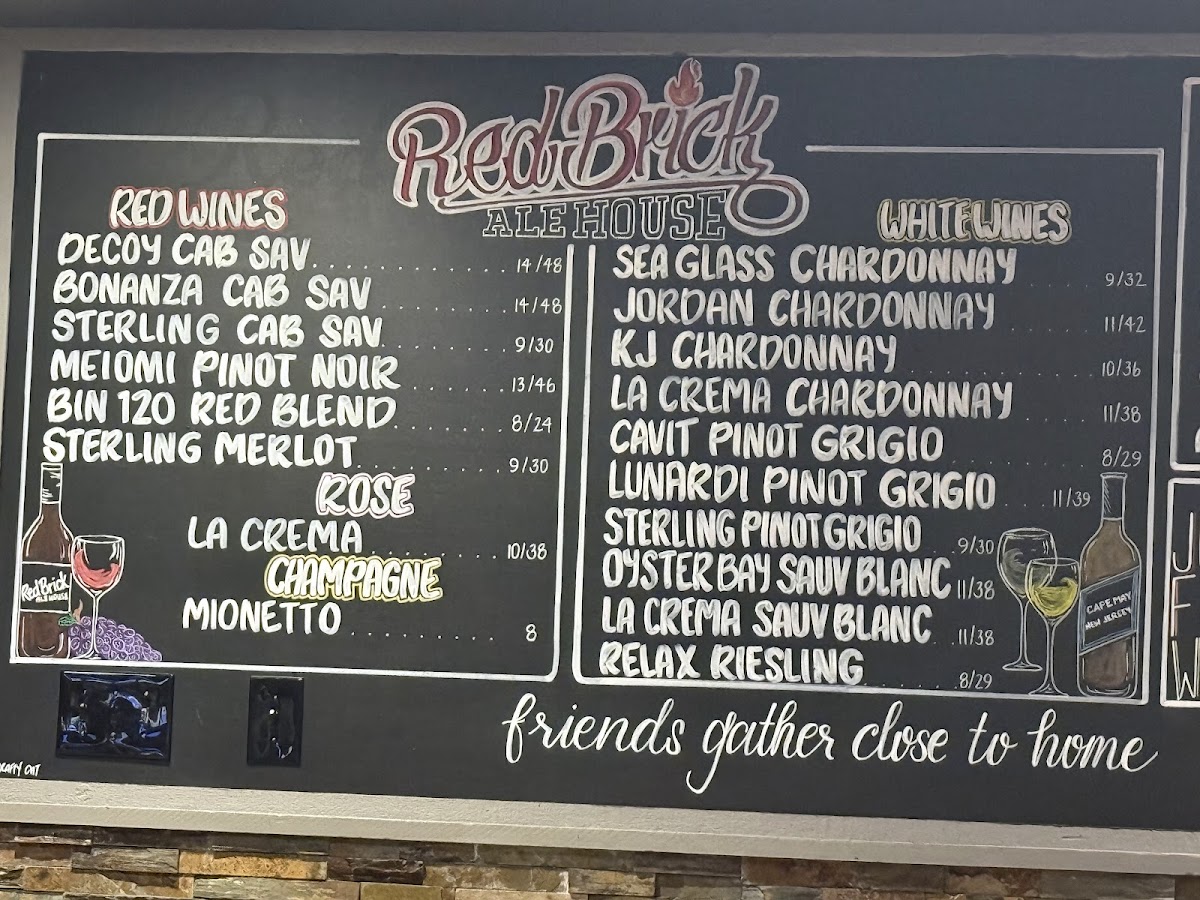 Red Brick
ALE HOUSE
RED WINES
DECOY CAB SAV . . . . . . . . . . . . 14/48
BONANZA CAB SAV . . . . . . . . . . 14/48
STERLING CAB SAV . . . . . . . . . 9/30
MEIOMI PINOT NOIR . . . . . . . . 13/46
BIN 120 RED BLEND . . . . . . . . 8/24
STERLING MERLOT . . . . . . . . . . 9/30
ROSE
LA CREMA . . . . . . . . . . 10/38
CHAMPAGNE
MIONETTO . . . . . . . . . . 8
Red Brick
ALE HOUSE
WHITE WINES
SEA GLASS CHARDONNAY . . . . . 9/32
JORDAN CHARDONNAY . . . . . . 11/42
KJ CHARDONNAY . . . . . . . . . . 10/36
LA CREMA CHARDONNAY . . . . . 11/38
CAVIT PINOT GRIGIO . . . . . . . . 8/29
LUNARDI PINOT GRIGIO . . . . 11/39
STERLING PINOT GRIGIO . . 9/30
OYSTER BAY SAUV BLANC 11/38
LA CREMA SAUV BLANC . . 11/38
RELAX RIESLING . . . . . . . 8/29
CAPE MAY
NEW JERSEY
friends gather close to home